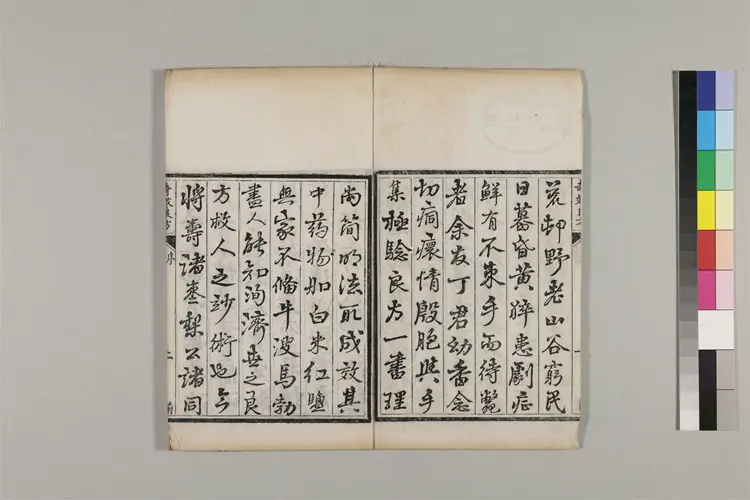 荒邨野老山谷窮民
日暮昏黃猝患劇症
鮮有不束手而待斃
者余友丁君幼番念
切痌瘝情殷胞與手
集極驗良方一書理
尚簡明法取成效其
中藥物如白米紅鹽
無家不備牛溲馬勃
盡人能知洵濟世之良
方救人之妙術也今
將壽諸棗梨公諸同
序
二